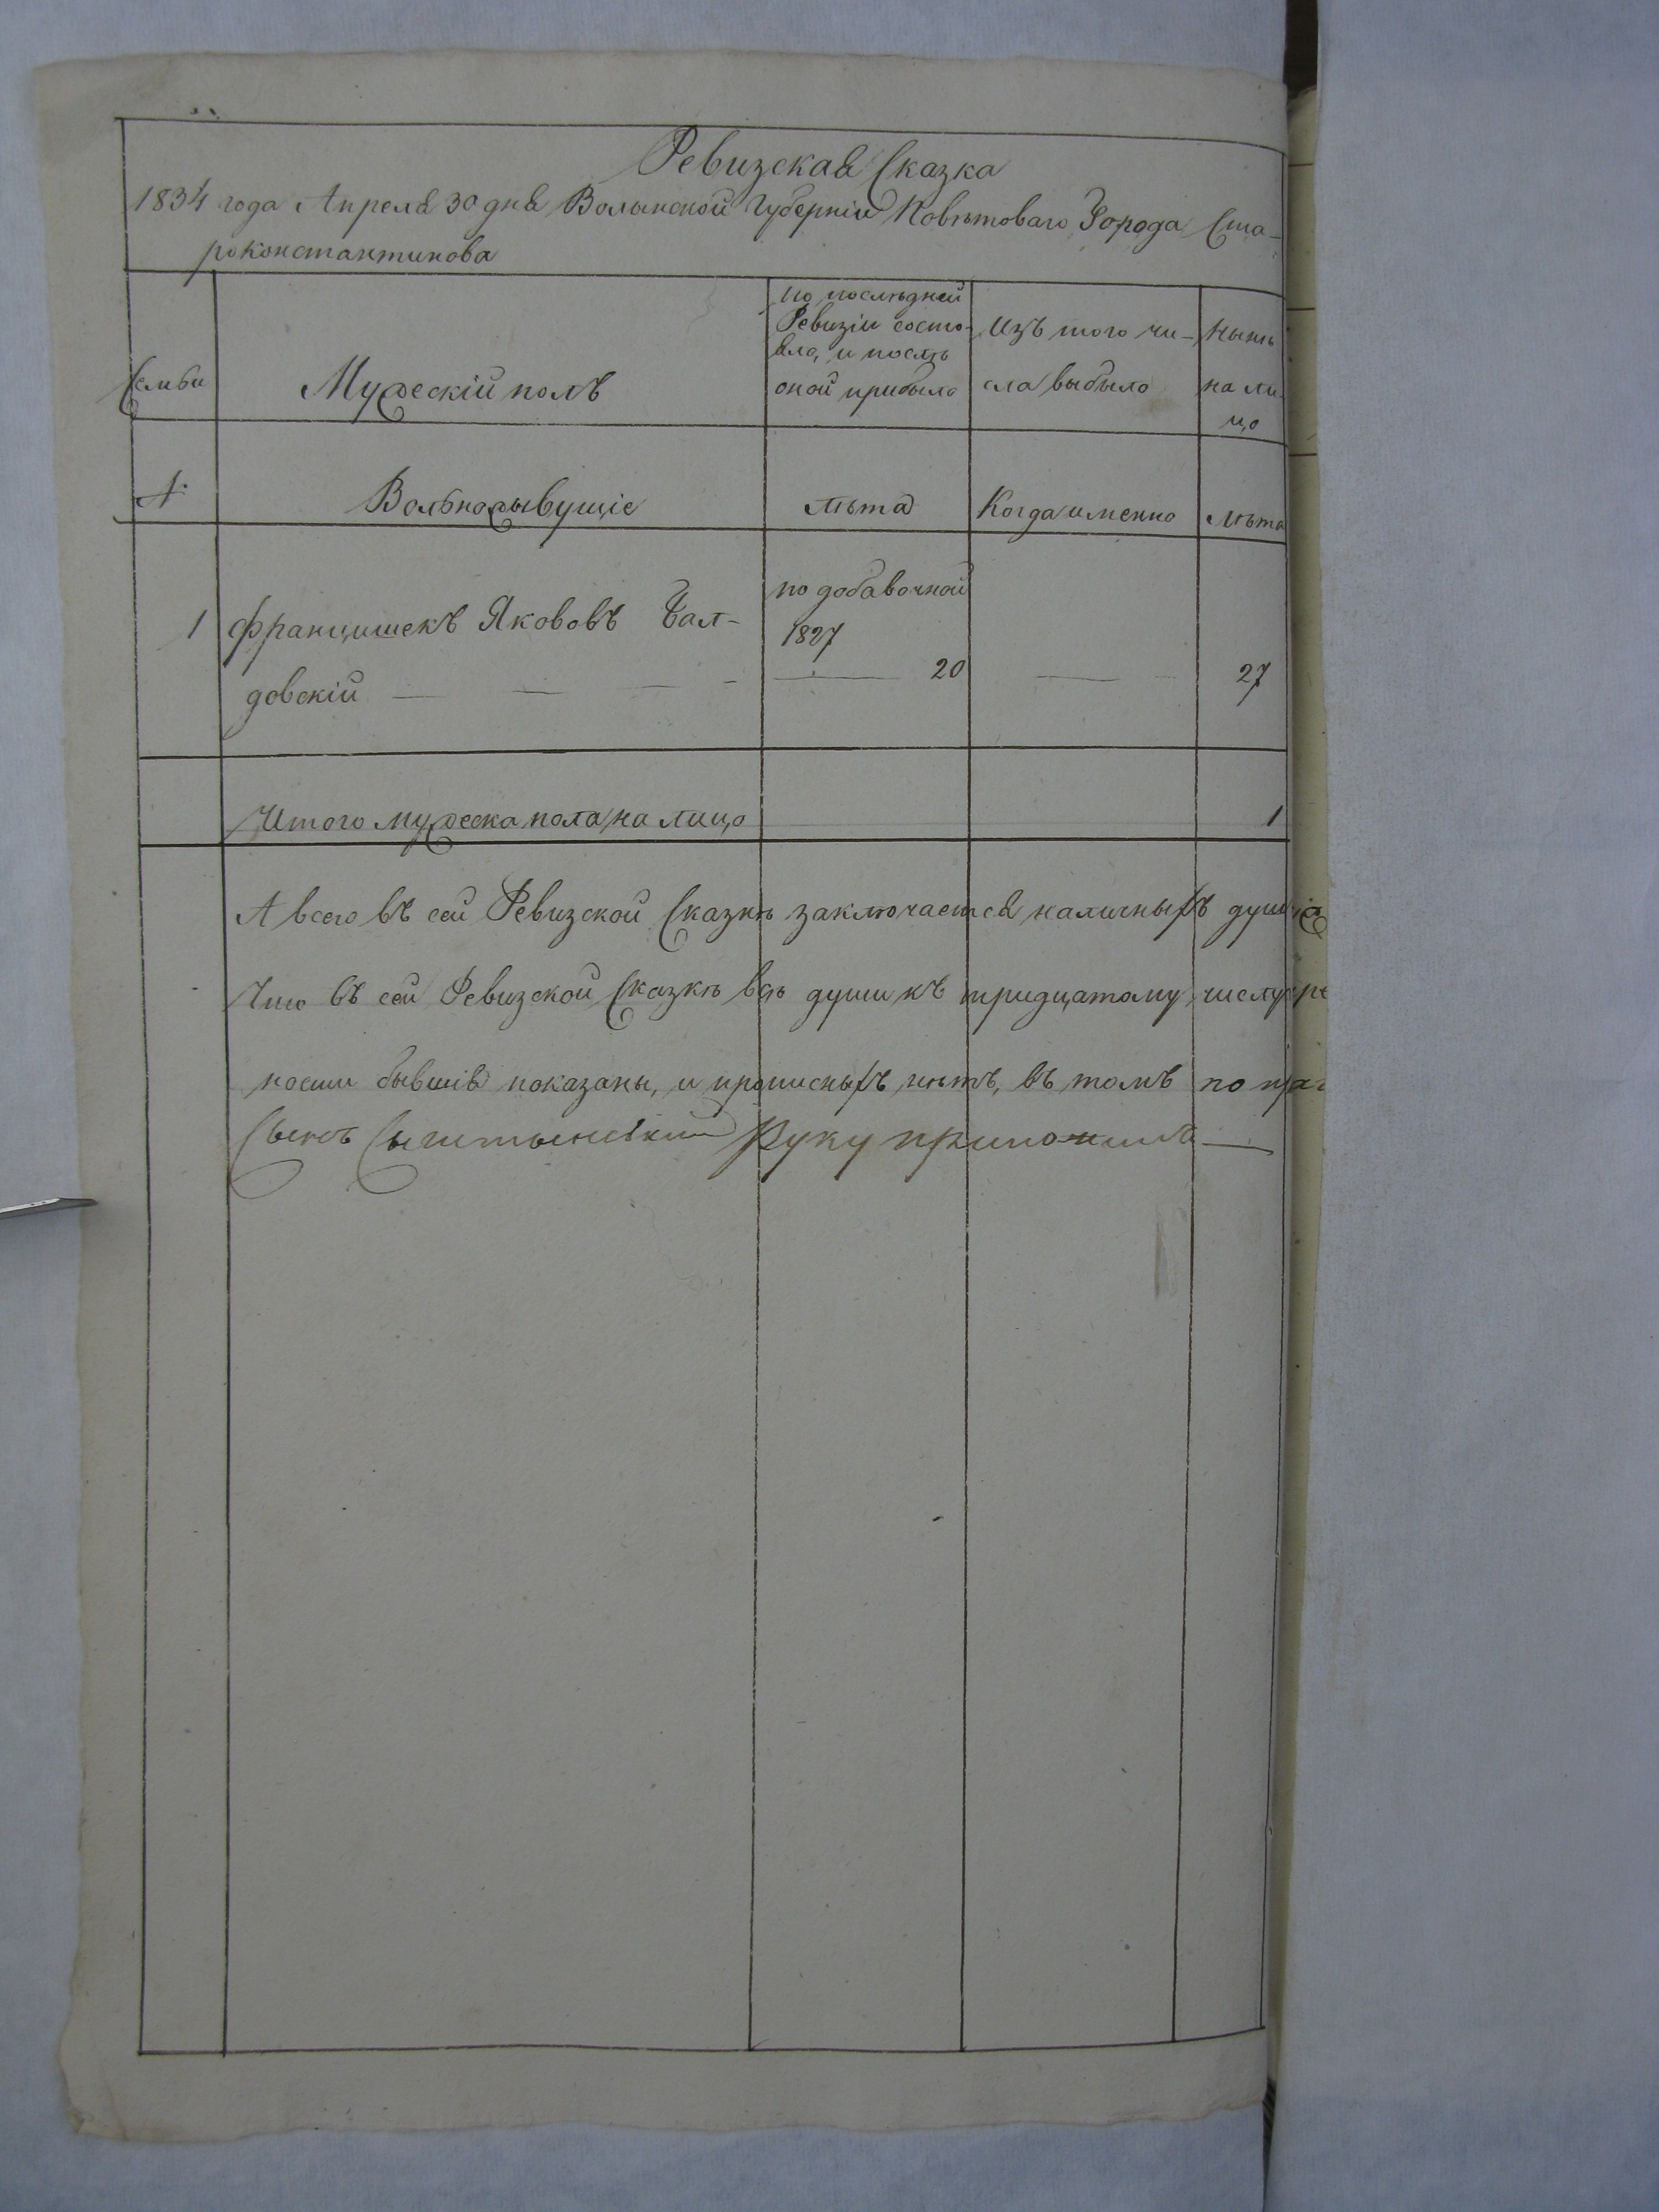 Ревизская Сказка
1834 года Апреля 30 дня Волынской Губерніи Повѣтоваго Города Ста-
роконстантинова
Семьи
Мужескій полъ
по послѣдней
Ревизіи состо-
яло, и послѣ
оной прибыло
Изъ того чи-
сла выбыло
Нынѣ
на ли-
цо
№
Вольноживущіе
лѣта
Когда именно
лѣта
1
Францишекъ Якововъ
довскій
по добавочной
1827
20
27
Итого мужеска пола на лицо
1
А всего въ сей Ревизской Сказкѣ заключается наличныхъ
Что въ сей Ревизской Сказкѣ всѣ души къ тридцатому числу
бывшія показаны, и прописныхъ нѣтъ, въ томъ по
руку приложилъ